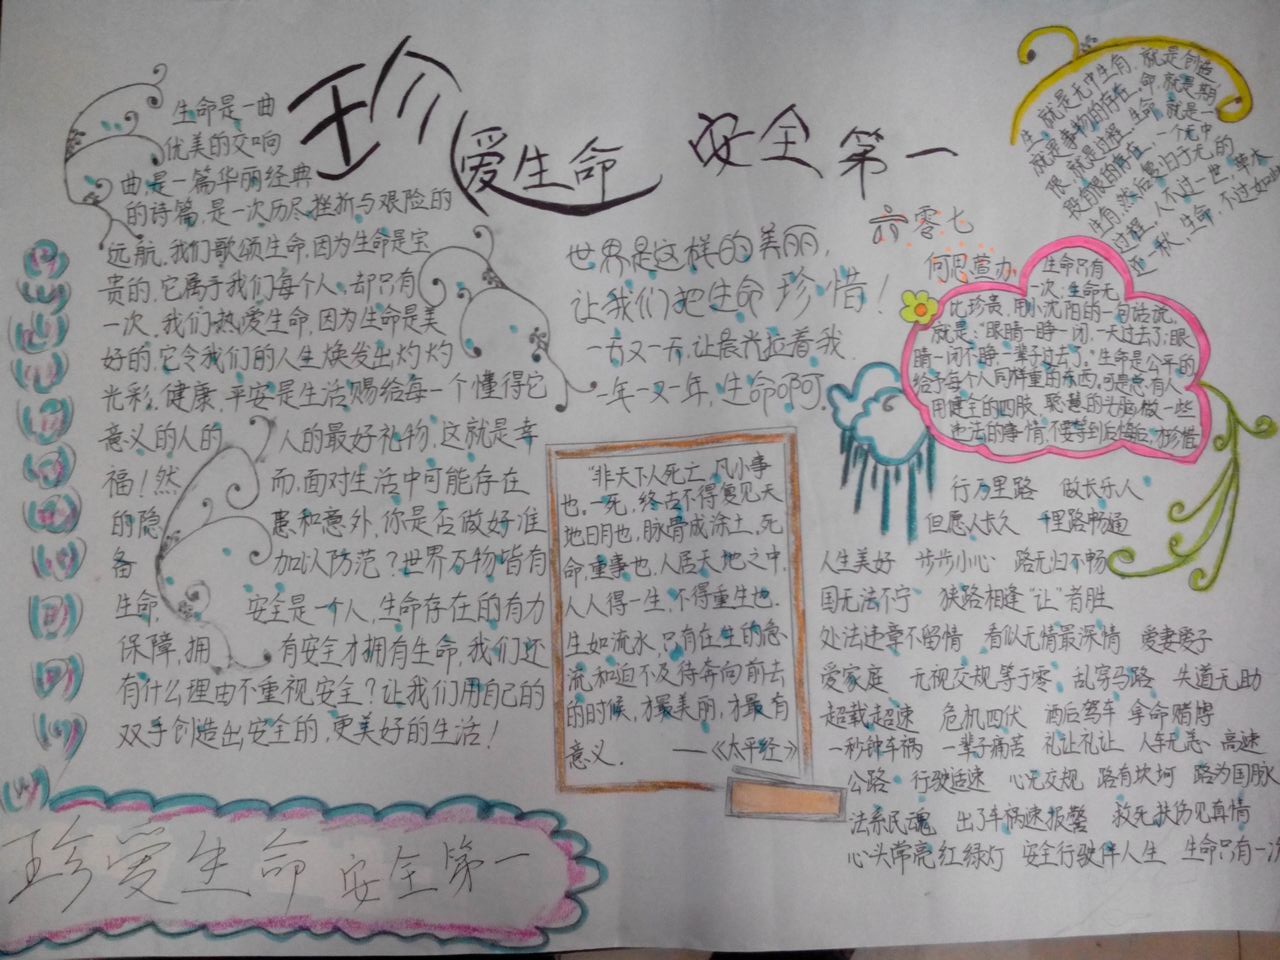 珍爱生命 安全第一
六零七
何思萱办
生命是一曲
优美的交响
曲,是一篇华丽经典
的诗篇,是一次历尽挫折与艰险的
远航,我们歌颂生命,因为生命是宝
贵的,它属于我们每个人,却只有
一次,我们热爱生命,因为生命是美
好的,它令我们的人生焕发出灼灼
光彩,健康,平安是生活赐给每一个懂得它
意义的人的人的最好礼物,这就是幸
福!然而,面对生活中可能存在
的隐患和意外,你是否做好准
备加以防范?世界万物皆有
生命,安全是一个人,生命存在的有力
保障,拥有安全才拥有生命,我们还
有什么理由不重视安全?让我们用自己的
双手创造出安全的,更美好的生活!
世界是这样的美丽,
让我们把生命珍惜!
一天又一天,让晨光拉着我
一年一又一年,生命啊
"非天下人死亡,凡小事
也,一死,终古不得复见天
地日月也,脉骨成涂土,死
命,重事也,人居天地之中,
人人得一生,不得重生也.
生如流水,只有在生的急
流和迫不及待奔向前去
的时候,才最美丽,才最有
意义.——《太平经》
生,就是无中生有,就是创造
就是事物的存在,命,就是期
限,就是过程,生命,就是一
段有限的存在,一个无中
生有然后复归于无的
过程,人不过一世,草木
不过一秋,生命,不过如此
生命只有
一次,生命无
比珍贵,用小沈阳的一句话说,
就是:"眼睛一睁一闭,一天过去了;眼
睛一闭不睁一辈子过去了."生命是公平的
给予每个人同样重的东西,可是总有人
用健全的四肢,聪慧的头脑做一些
违法的事情,不要等到后悔后,才珍惜
行万里路 做长乐人
但愿人长久 千里路畅通
人生美好 步步小心 路无归不畅
国无法不宁 狭路相逢"让"者胜
处法违章不留情 看似无情最深情 爱妻爱子
爱家庭 无视交规等于零 乱穿马路 失道无助
超载超速 危机四伏 酒后驾车 拿命赌博
一秒钟车祸 一辈子痛苦 礼让礼让 人车无恙 高速
公路 行驶适速 心无交规 路有坎坷 路为国脉
法系民魂 出了车祸速报警 救死扶伤见真情
心头常亮红绿灯 安全行驶伴人生 生命只有一次
珍爱生命安全第一